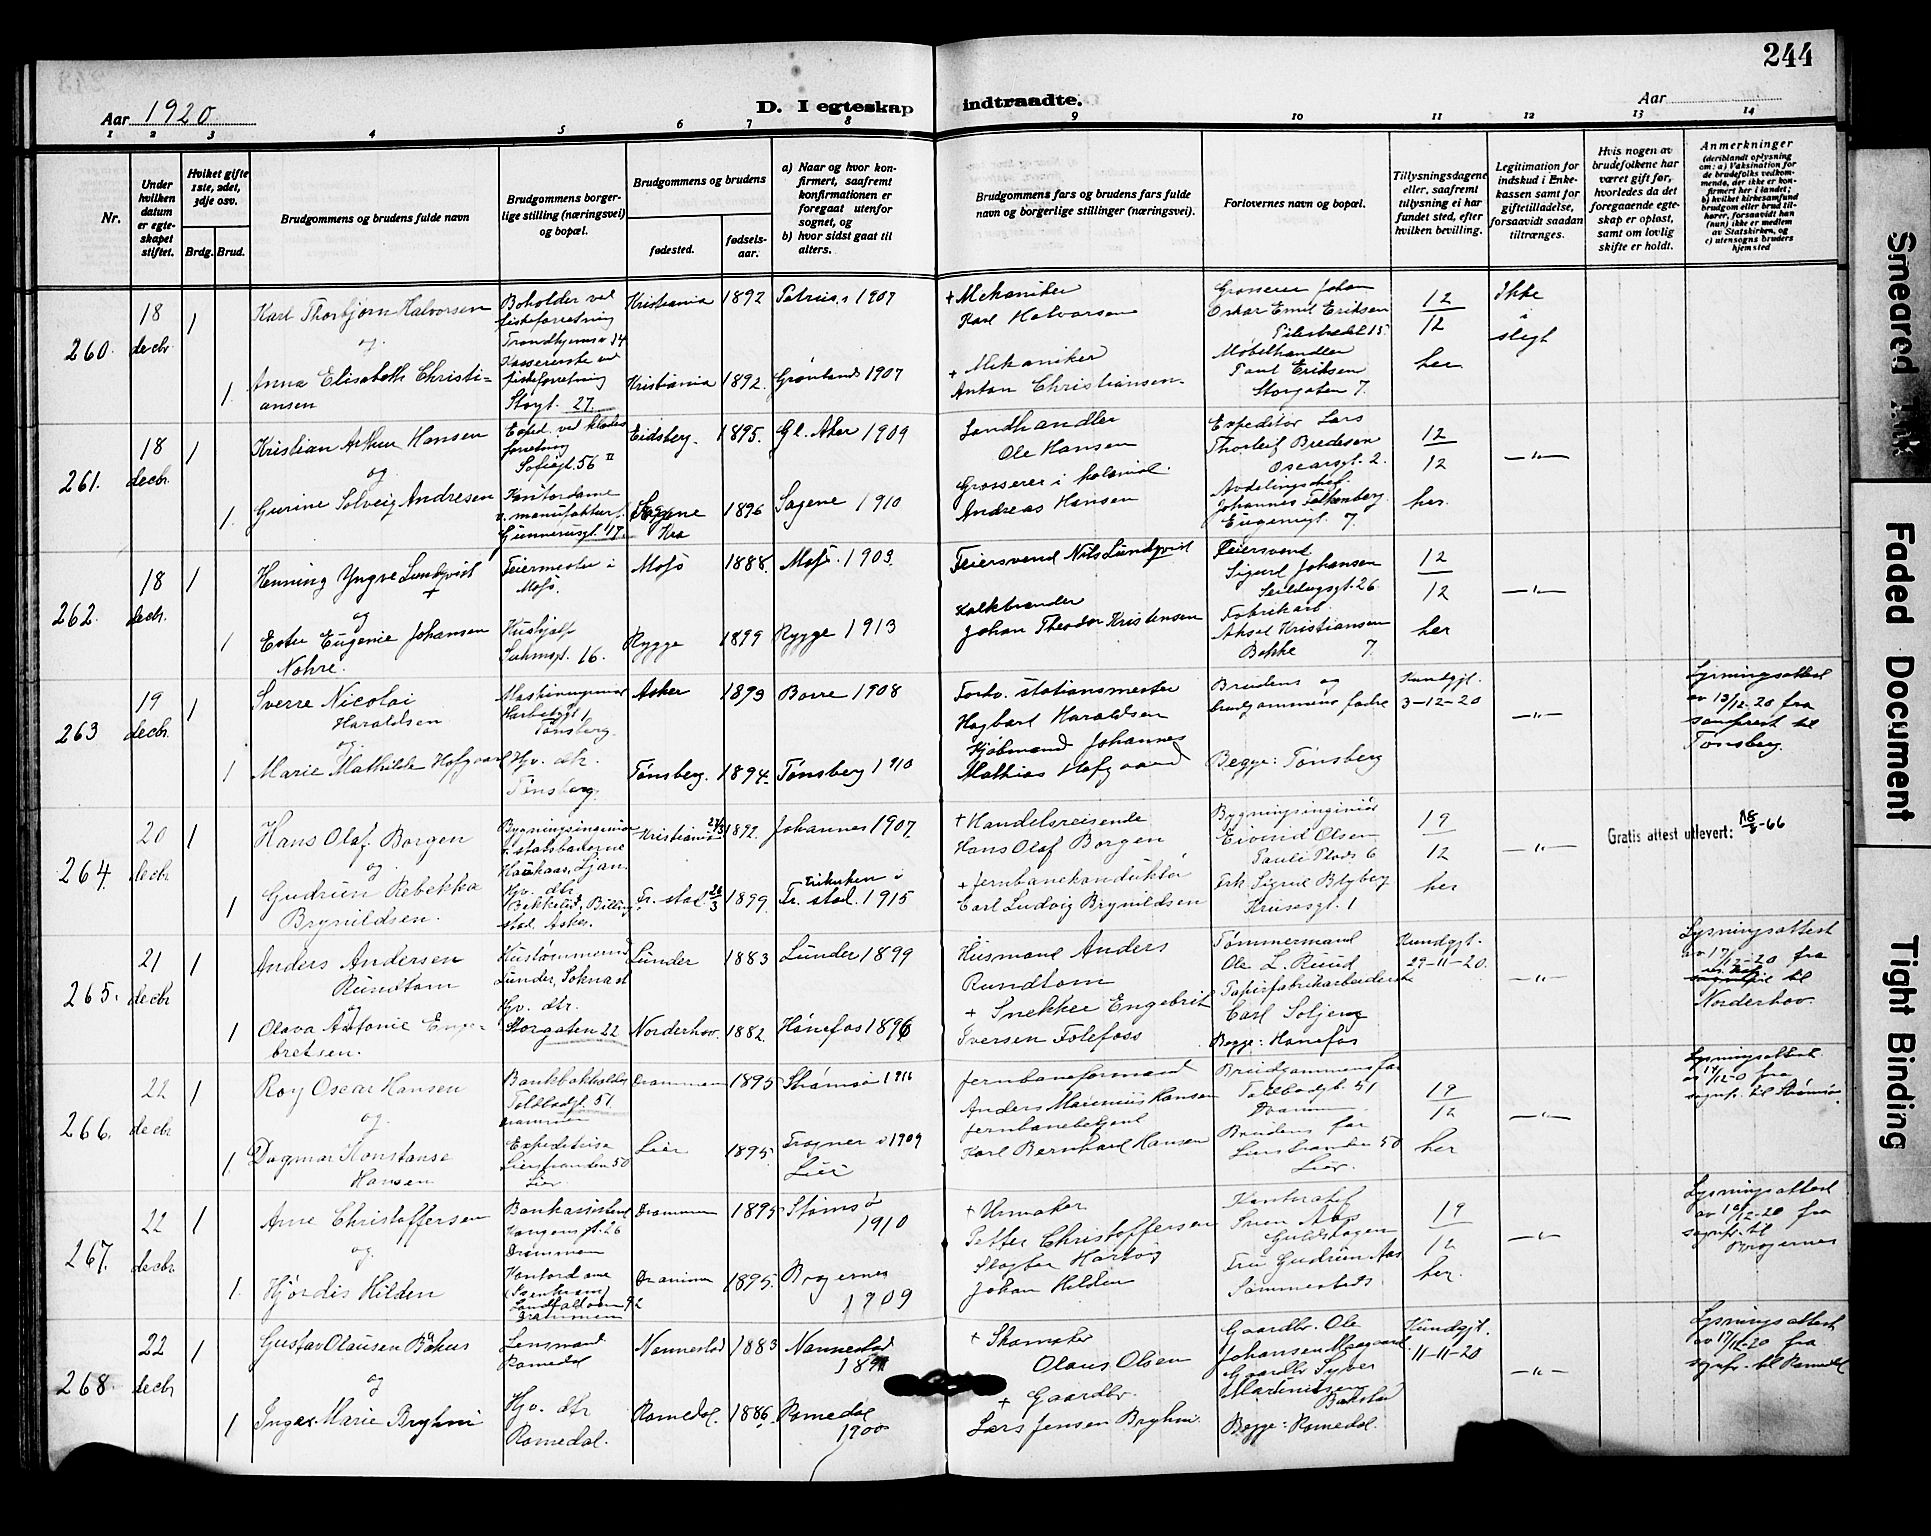 244
Aar 1920
D. I egteskap indtraadte.
Aar
1 2 3 4 5 6 7 8 9 10 11 12 13 14
Nr.
Under hvilken datum er egteskapet stiftet.
Hvilket gifte 1ste, 2det, 3dje osv.
Brdg. Brud.
Brudgommens og brudens fulde navn
Brudgommens borgerlige stilling (næringsvei) og bopæl.
Brudgommens og brudens
fødested.
fødselsaar.
a) Naar og hvor konfirmert, saafremt konfirmationen er foregaat utenfor sognet, og
b) hvor sidst gaat til alters.
Brudgommens fars og brudens fars fulde navn og borgerlige stillinger (næringsvei).
Forlovernes navn og bopæl.
Tillysningsdagene eller, saafremt tillysning ei har fundet sted, efter hvilken bevilling.
Legitimation for indskud i Enkekassen samt for giftetilladelse, forsaavidt saadan tiltrænges.
Hvis nogen av brudefolkene har været gift før, hvorledes da det foregaaende egteskap er opløst, samt om lovlig skifte er holdt.
Anmerkninger
(deriblandt oplysning om: a) Vaksination for de brudefolks vedkommende, der ikke er konfirmert her i landet; b) hvilket kirkesamfund brudgom eller brud tilhører, forsaavidt han (hun) ikke er medlem av Statskirken, og c) utensogns bruders hjemsted
260. 18 decbr. 1
Karl Thorbjørn Halvorsen
og
Boholder ved fiskeforretning
Kristiania 1892 Petrus 1907
+ Mekaniker
Karl Halvorsen
Grosserer Johan
Oskar Emil Eriksen
Pilestrædet 15
12
12
her
Ikke
sligt
1 Anna Elisabeth Christi=
ansen
Kassererske ved fiskeforretning
Storgt. 27.
Kristiania 1892. Grønlands 1907
+ Mekaniker
Anton Christiansen.
Møbelhandler
Paul Eriksen
Storgaten 7.
261. 18 decbr. 1
Kristian Arthur Hansen
og
Exped. ved klædesforretning
Sofiegt. 56 II
Eidsberg. 1895. Gl. Aker 1909
Landhandler
Ole Hansen
Expeditør Lars
Thorleif Bredesen
Oscarsgt. 2.
12
12
her.
— " —
1. Gurine Solveig Andresen
Kontordame
v. manufaktur f.
Gunnerusgt. 17.
Sagene
Kra
1896 Sagene 1910
Grosserer i kolonial.
Andreas Hansen
Avdelingschef.
Johannes Falkenberg.
Eugeniesgt. 7.
262. 18 decbr. 1
Henning Yngve Lundqvist
og
Feiermester i
Moss.
Moss 1888. Moss. 1903.
Feiersvend Nils Lundqvist
Feiersvend
Sigurd Johansen
Seilduksgt. 26
12
12
her
— " —
1 Ester Eugenie Johansen
Nøhre.
Hushjælp
Suhmsgt. 16.
Rygge 1899 Rygge 1913
Kalkbrænder
Johan Theodor Kristensen
Fabrikarb.
Aksel Kristiansen
Bakke 7.
263 19 decbr. 1
Sverre Nicolai
Haraldsen
og
Maskiningeniør
Tønsberg.
Asker 1893 Borre 1908
Forhv. stationsmester
Hagbart Haraldsen
Brudens og
brudgommens fadre
Kundgjt.
3-12-20
— " —
Lysningsattest
av 13/12-20 fra
sogneprest til
Tønsberg.
1 Marie Mathilde Hofgaard
Hjv. dtr.
Tønsberg.
Tønsberg. 1894. Tønsberg 1910
Kjøbmand Johannes
Mathias Hofgaard
Begge: Tønsberg
264. 20 decbr 1
Hans Olaf Borgen
og
Bygningsingeniør
v. statsbanerne
Ljan.
Kristiania 1892. Johannes 1907.
+ Handelsreisende
Hans Olaf Borgen
Bygningsingeniør
Eivind Olsen
Pauli Plads 6
19
12
her
— " —
Gratis attest utlevert: 18/8-66
1 Gudrun Rebekka
Brynildsen.
Hjv. dtr.
Bekkelid, Billingstad. Asker.
Fr. stad 26/3 1899. Fr. stad. 1915
+ Jernbanekonduktør
Carl Ludvig Brynildsen
Frk Sigrid Blyberg
Kruisesgt. 1
265. 21 decbr 1
Anders Andersen
Rundtom
og
Hustømmermand
Lunder, Soknast
Lunder 1883 Lunder 1899
Husmand Anders
Rundtom
Tømmermand
Ole L. Ruud
Kundgjt.
29-11-20.
— " —
Lysningsattest
av 17/12-20 fra
til
Norderhov.
1 Olava Antonie Enge-
bretsen.
Hjv. dtr.
Storgaten 22
Norderhov. 1882. Hønefos 1896
+ Snekker Engebrit
Iversen Folefoss
Papirfabrikarbeider
Carl Soljem
Begge: Hønefos
266. 22 decbr 1
Roy Oscar Hansen
og
Bankbokholder
Toldbodgt. 51
Drammen
Drammen 1895 Strømsø 1911
Jernbaneformand
Anders Marenius Hansen
Brudgommens far
Toldbodgt. 51
Drammen
19
12
her
— " —
Lysningsattest
av 14/12-20 fra
sognpr. til Strømsø.
1 Dagmar Konstanse
Hansen
Expeditrise
Lierstranden 50
Lier
Lier 1895. Frogner i 1909
Lier
Jernbanebetjent
Karl Bernhard Hansen
Brudens far
Lierstranden 50
Lier.
267. 22 decbr. 1
Arne Christoffersen
og
Bankassistent
Kongensgt. 26
Drammen
Drammen 1895 Strømsø
1910
+ Urmaker
Petter Christoffersen
Kontorchef
Sven Aas
Guldskogen
19
12
her.
— " —
Lysningsattest
av 10/12-20 fra
sognpr. til
Bragernes
1. Hjørdis Hilden
Kontordame
Landfaldøen 92
Drammen
Drammen 1895. Bragernes
1909
Slagter Hartvig
Johan Hilden
Fru Gudrun Aas
Sommerstads
268. 22 decbr 1
Gustav Olausen Bakus
og
Lensmand
Romedal
Nannestad 1883 Nannestad
+ Skomaker
Olaus Olsen
Gaardbr. Ole
Johansen
Kundgjt.
11-11-20
— " —
Lysningsattest
av 17/12-20 fra
sognpr. til Romedal
1 Inger Marie Bryhni
Hjv. dtr
Romedal.
Romedal. 1886. Romedal
1900
+ Gaardbr.
Lars Jensen Bryhni.
Gaardbr Syver
Begge: Romedal.
Smeared Ink
Faded Document
Tight Binding